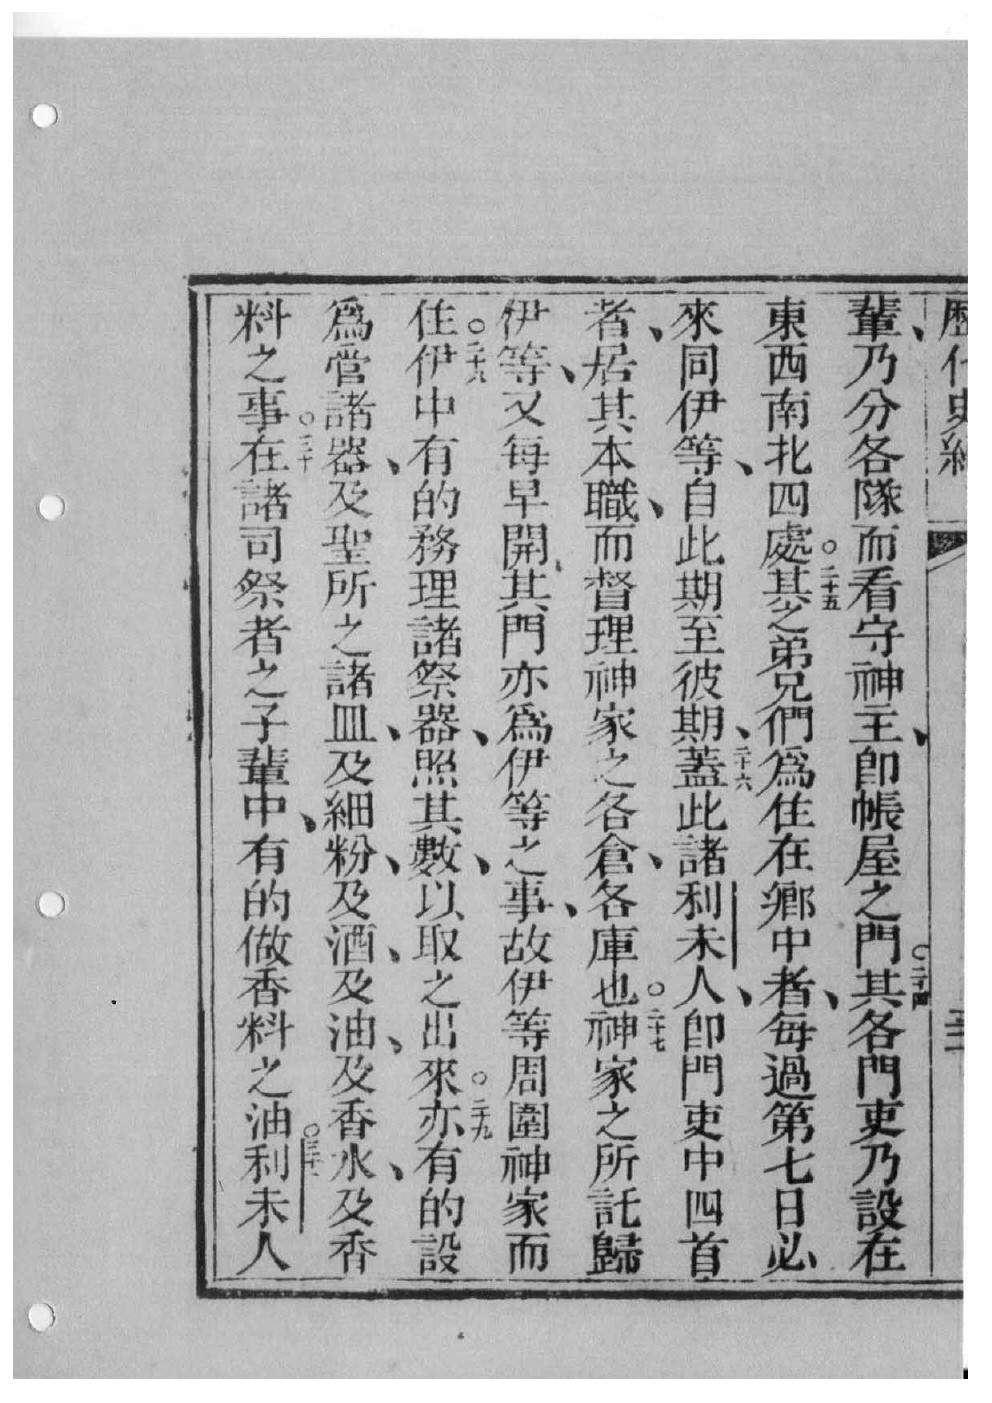 歷代史紀
輩、乃分各隊而看守神主、卽帳屋之門○二十四其各門吏乃設在
東西南北四處○二十五其之弟兄們爲住在鄉中者、每過第七日必
來同伊等、自此期至彼期、二十六蓋此諸利未人、卽門吏中四首
者、居其本職、而督理神家之各倉、各庫也○二十七神家之所託歸
伊等、又每早開其門亦爲伊等之事、故伊等周圍神家而
住○二十八伊中有的務理諸祭器、照其數、以取之出來○二十九亦有的設
爲管諸器、及聖所之諸皿、及細粉、及酒、及油、及香水、及香
料之事○三十在諸司祭者之子輩中、有的做香料之油○三十一利未人